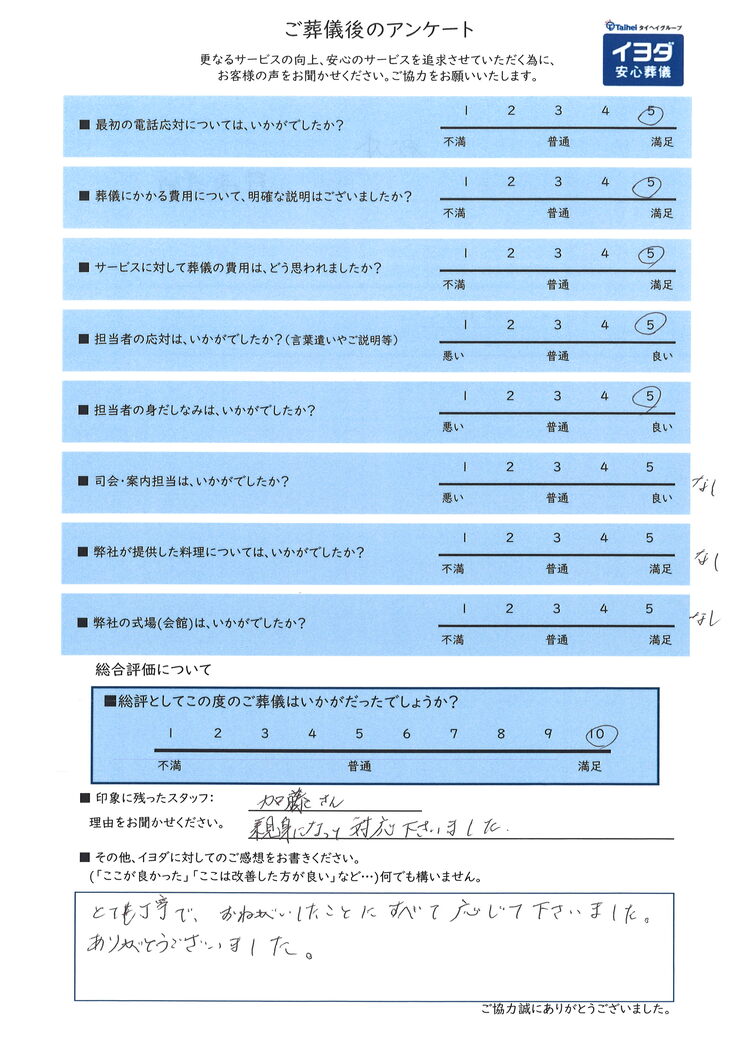 ご葬儀後のアンケート
Taihei タイヘイグループ
イヨダ
安心葬儀
更なるサービスの向上、安心のサービスを追求させていただく為に、
お客様の声をお聞かせください。ご協力をお願いいたします。
■ 最初の電話応対については、いかがでしたか？
1 2 3 4 5
不満 普通 満足
■ 葬儀にかかる費用について、明確な説明はございましたか？
1 2 3 4 5
不満 普通 満足
■ サービスに対して葬儀の費用は、どう思われましたか？
1 2 3 4 5
不満 普通 満足
■ 担当者の応対は、いかがでしたか？（言葉遣いやご説明等）
1 2 3 4 5
悪い 普通 良い
■ 担当者の身だしなみは、いかがでしたか？
1 2 3 4 5
悪い 普通 良い
■ 司会・案内担当は、いかがでしたか？
1 2 3 4 5
悪い 普通 良い
なし
■ 弊社が提供した料理については、いかがでしたか？
1 2 3 4 5
不満 普通 満足
なし
■ 弊社の式場(会館)は、いかがでしたか？
1 2 3 4 5
不満 普通 満足
なし
総合評価について
■総評としてこの度のご葬儀はいかがだったでしょうか？
1 2 3 4 5 6 7 8 9 10
不満 普通 満足
■ 印象に残ったスタッフ： 加藤さん
理由をお聞かせください。 親身になって対応下さいました.
■ その他、イヨダに対してのご感想をお書きください。
(「ここが良かった」「ここは改善した方が良い」など…)何でも構いません。
とても丁寧で、おねがいしたことにすべて応じて下さいました。
ありがとうございました。
ご協力誠にありがとうございました。